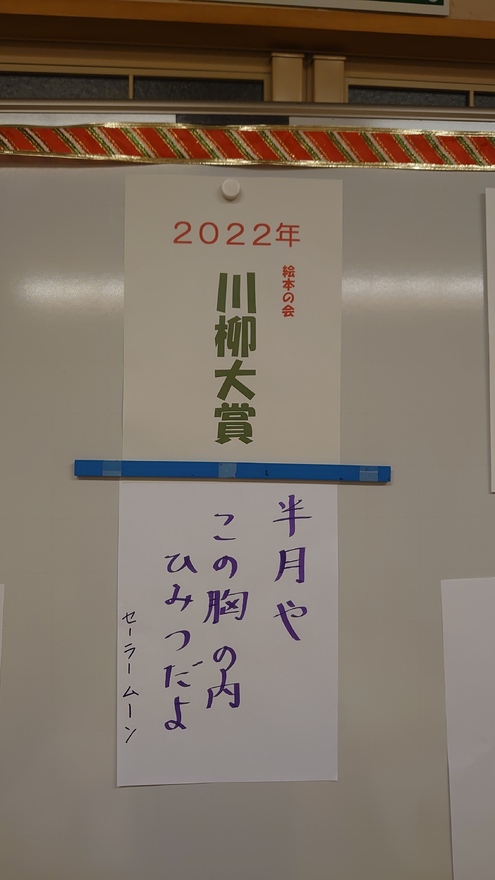 2022年
絵本の会
川柳大賞
半月や
この胸の内
ひみつだよ
セーラームーン